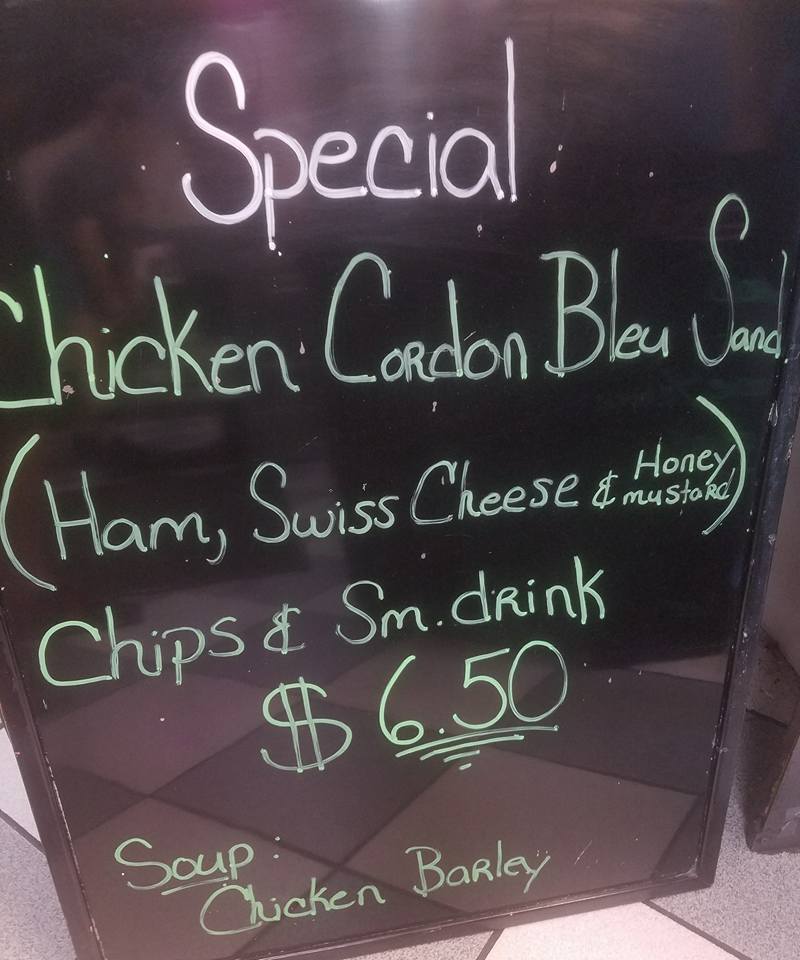 Special
Chicken Cordon Bleu Sand.
(Ham, Swiss Cheese & Honey mustard)
Chips & Sm. drink
$ 6.50
Soup:
Chicken Barley